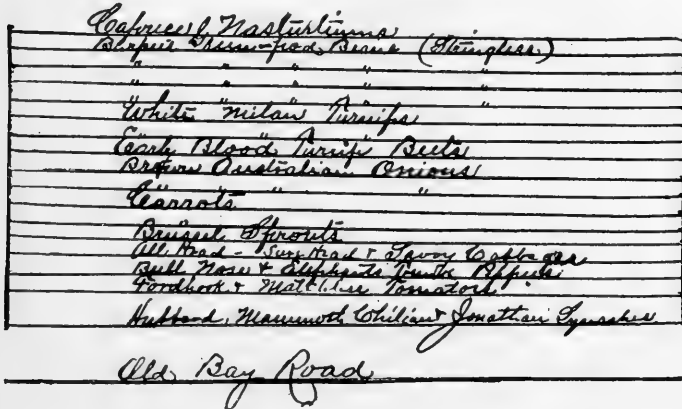 Caprice & Nasturtiums
Burpee's Green-pod Beans (Stringless)
" " " " "
" " " " "
White "Milan" Turnips
" " "
Early Blood Turnip Beets
Brown Australian Onions
" " "
Carrots
Brussel Sprouts
All Head - Sure Head & Savoy Cabbages
Bull Nose & Elephants Trunk Peppers
Fordhook & Matchless Tomatoes
Hubbard, Mammoth Chilian & Jonathan Squashes
Old Bay Road